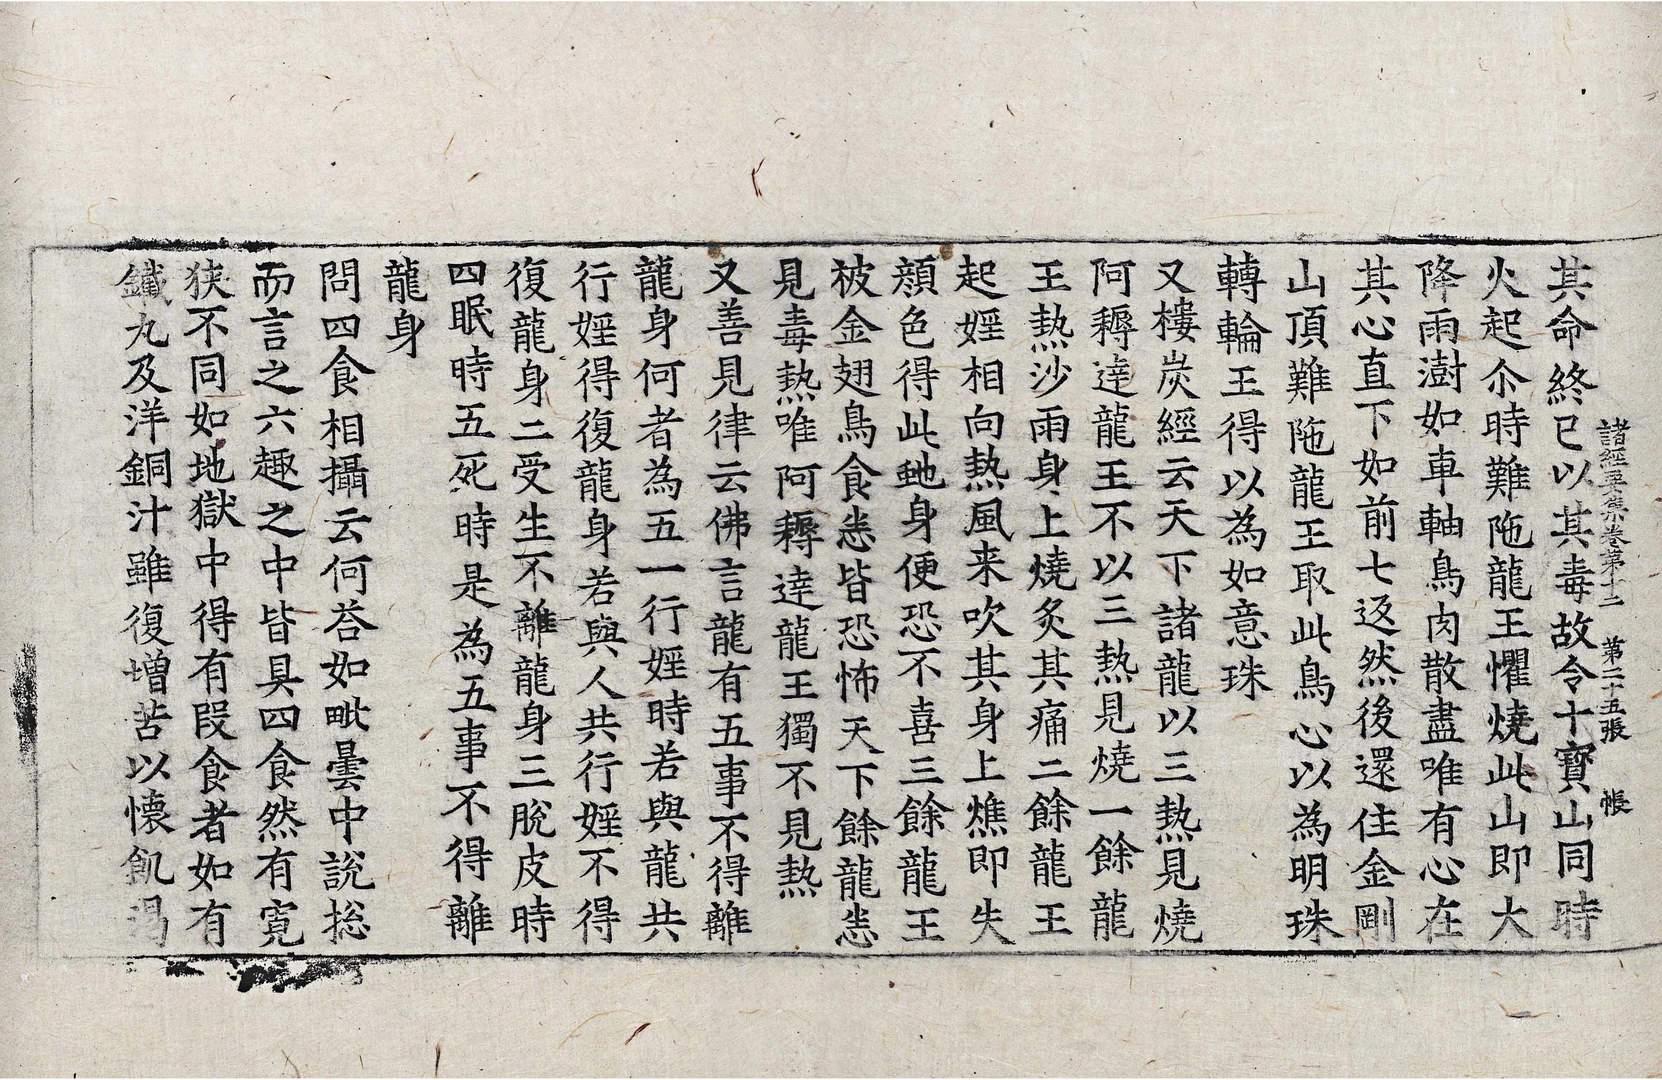 諸經要集卷第十二　第二十五張　帳
其命終已以其毒故令十寶山同時
火起尒時難陁龍王懼燒此山即大
降雨澍如車軸鳥肉散盡唯有心在
其心直下如前七返然後還住金剛
山頂難陁龍王取此鳥心以為明珠
轉輪王得以為如意珠
又樓炭經云天下諸龍以三熱見燒
阿耨達龍王不以三熱見燒一餘龍
王熱沙雨身上燒炙其痛二餘龍王
起婬相向熱風来吹其身上燋即失
顏色得此虵身便恐不喜三餘龍王
被金翅鳥食恚皆恐怖天下餘龍恚
見毒熱唯阿耨達龍王獨不見熱
又善見律云佛言龍有五事不得離
龍身何者為五一行婬時若與龍共
行婬得復龍身若與人共行婬不得
復龍身二受生不離龍身三脫皮時
四眠時五死時是為五事不得離
龍身
問四食相攝云何荅如毗曇中說捴
而言之六趣之中皆具四食然有寬
狹不同如地獄中得有段食者如有
鐵丸及洋銅汁雖復增苦以懷飢渴